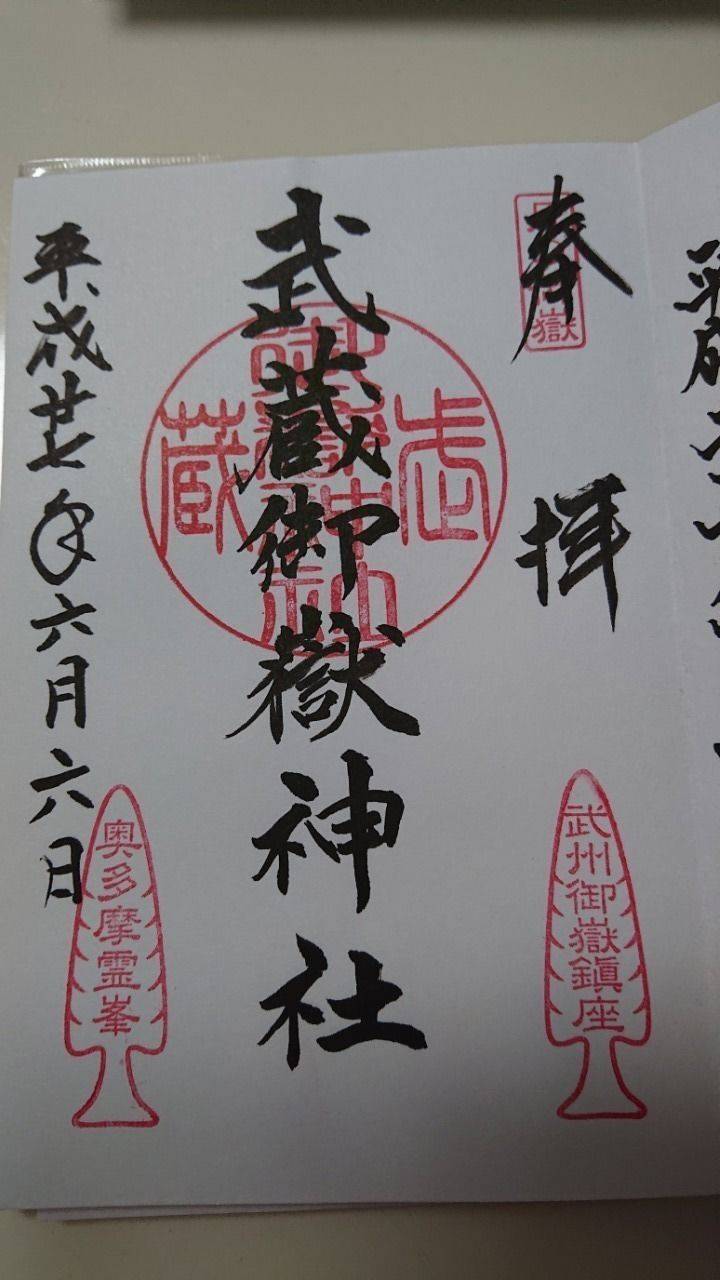 奉拝
武蔵御嶽神社
平成廿七年六月六日
武蔵御嶽神社
武州御嶽鎮座
奥多摩霊峯